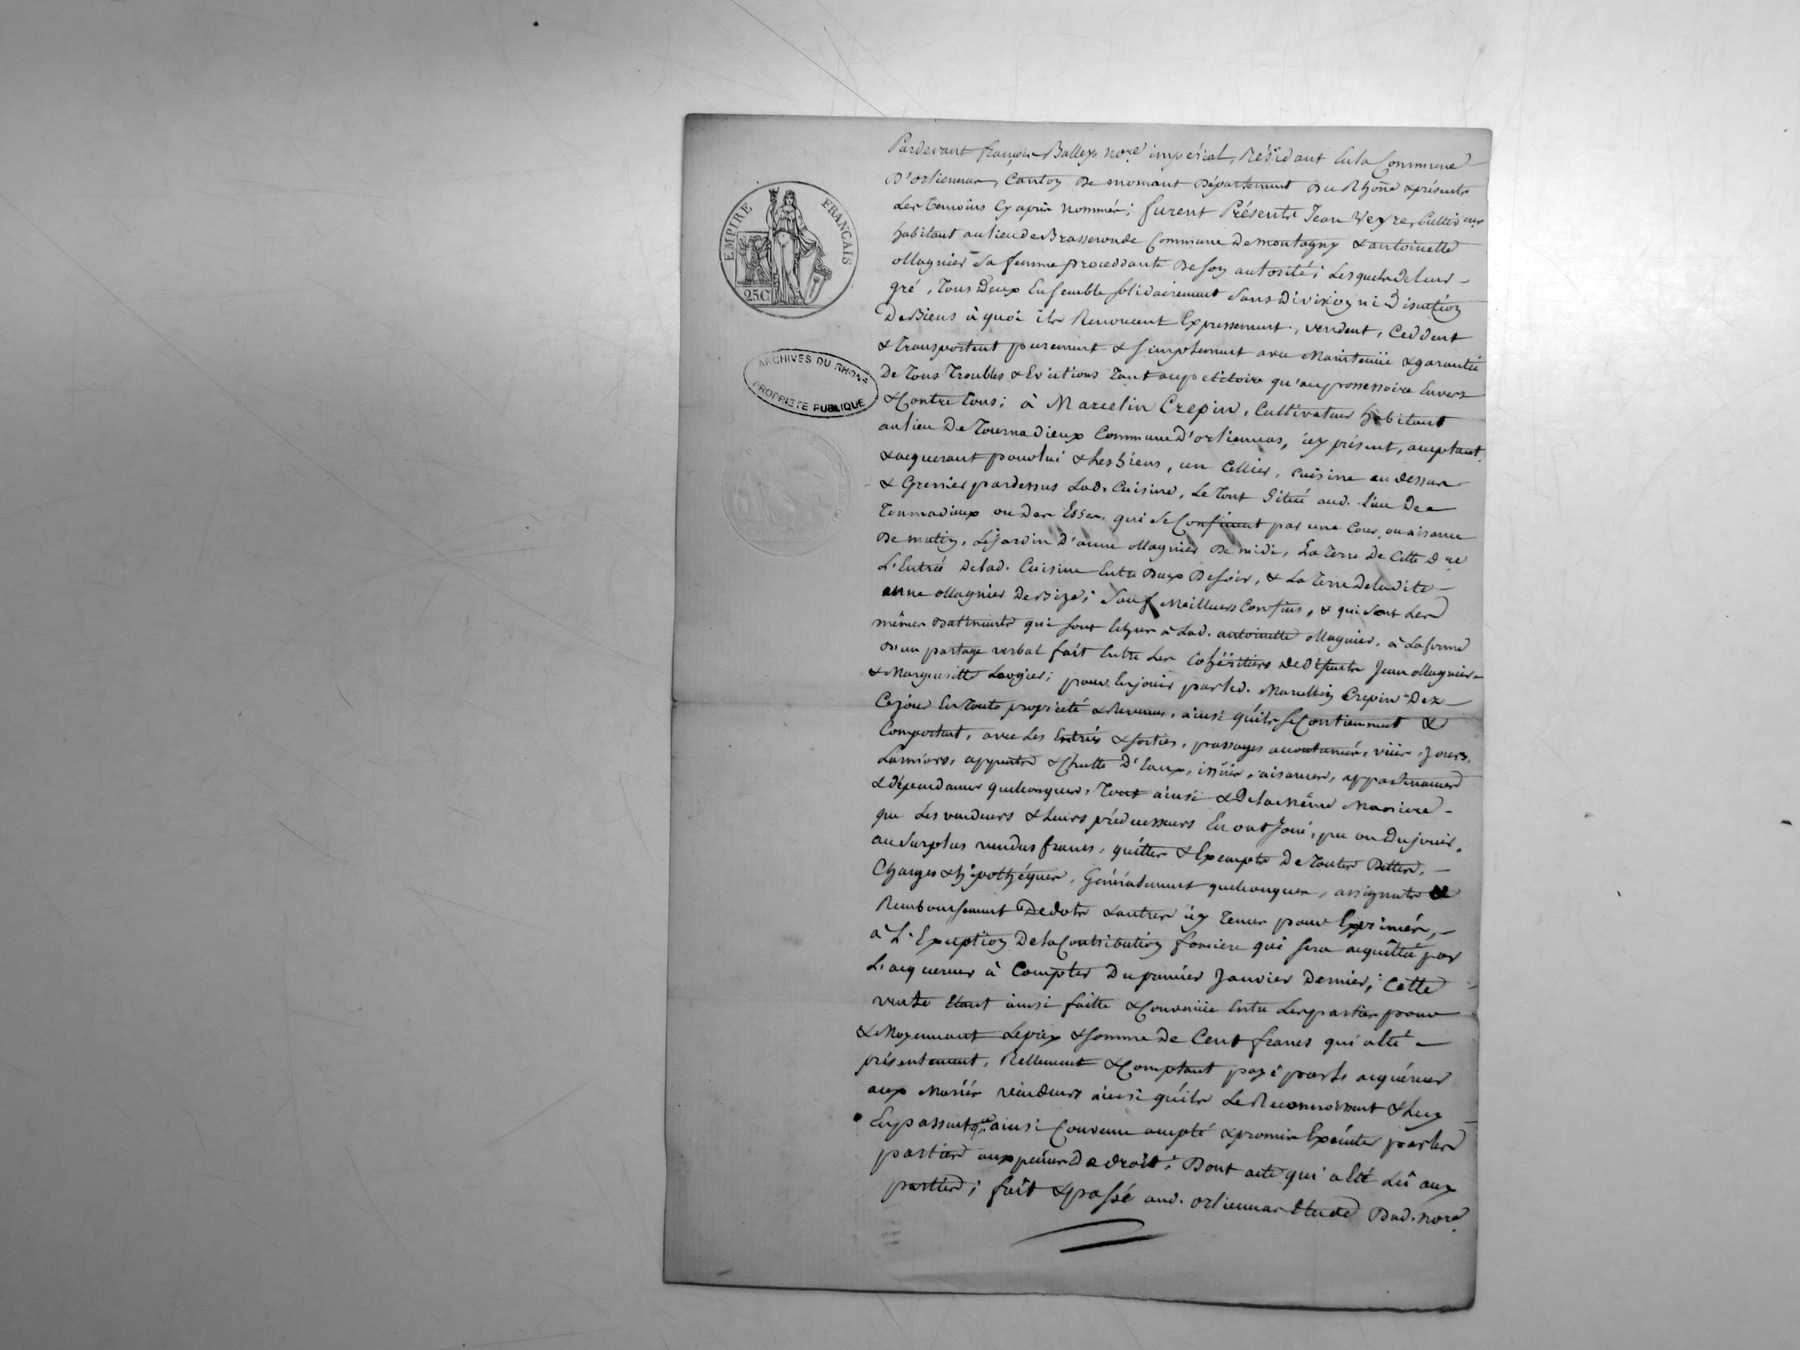 EMPIRE FRANÇAIS
25C
ARCHIVES DU RHONE
PROPRIETE PUBLIQUE
Pardevant françois Balley nore. impérial, Résidant En la Commune
D'orliennas, Canton De mornant Département Du Rhône & présents
Les temoins Cy après Nommés; furent Présents Jean Veyre, Cultivateur
habitant au lieu de Brasseronde Commune de montagny & antoinette
ollagnier Sa femme proceddante De Son autorité; Lesquels de leur
gré, Tous Deux Ensemble solidairement Sans Division ni Discution
De Biens à quoi ils Renoncent Expressement, vendent, Ceddent
& Transportent purement & Simplement avec Maintenüe & garantie
De Tous Troubles & Evictions Tant au petitoire qu'au possessoire Envers
& Contre Tous; à Marcelin Crepin, Cultivateur habitant
au lieu De Tournadieux Commune D'orliennas, icy présent, acceptant
& acquerant pour lui & Les Siens, un Cellier, cuisine au dessus
& Grenier pardessus Lad. Cuisine, Le Tout Situé aud. Lieu De
Tournadieux ou Des Esses, qui Se Confinent par une Cour ou aisance
De matin, Le jardin D'anne ollagnier De midi, La Terre De Cette Dre
L'Entrée De lad. Cuisine Entre Deux De soir, & La Terre De ladite
anne ollagnier De Bize; Sauf Meilleurs Confins, & qui Sont Les
mêmes Batiments qui sont Echus à Lad. antoinette ollagnier, à La forme
D'un partage verbal fait Entre Les Cohéritiers De Défunts Jean ollagnier
& Margueritte Laogier; pour En jouir par led. Marcellin Crepin Dez
Ce jour En Toute propriété & Revenus, ainsi qu'ils Se Contiennent &
Comportent, avec Les Entrées & sorties, passages accoutumés, vües, Jours,
Larmiers, appuits & Chutte D'Eaux, issües, aisances, appartenances
& dépendances quelconques, Tout ainsi & De la Même Maniere
que Les vendeurs & Leurs prédécesseurs En ont Joui, pu ou Du jouir,
au Surplus vendus francs, quittes & Exempts De Toutes Dettes,
Charges & hipothéques, Généralement quelconques, assignats &
Remboursement De dots & autres icy Tenus pour Exprimés,
à L'Exception De la Contribution fonciere qui Sera acquittée par
L'acquereur à Compter Du premier Janvier Dernier; Cette
vente Etant ainsi faitte & Convenüe Entre Les parties pour
& Moyennant Le prix & somme de Cent francs qui a Eté
présentement, Réellement & Comptant payé par le acquéreur
aux Mariés vendeurs ainsi qu'ils Le Reconnoissent & Luy
En passent qce ainsi Convenu accepté & promis Exécuter par les
parties aux peines De droit; Dont acte qui a Eté Lû aux
parties; fait & passé aud. orliennas Etude Dud. nore.